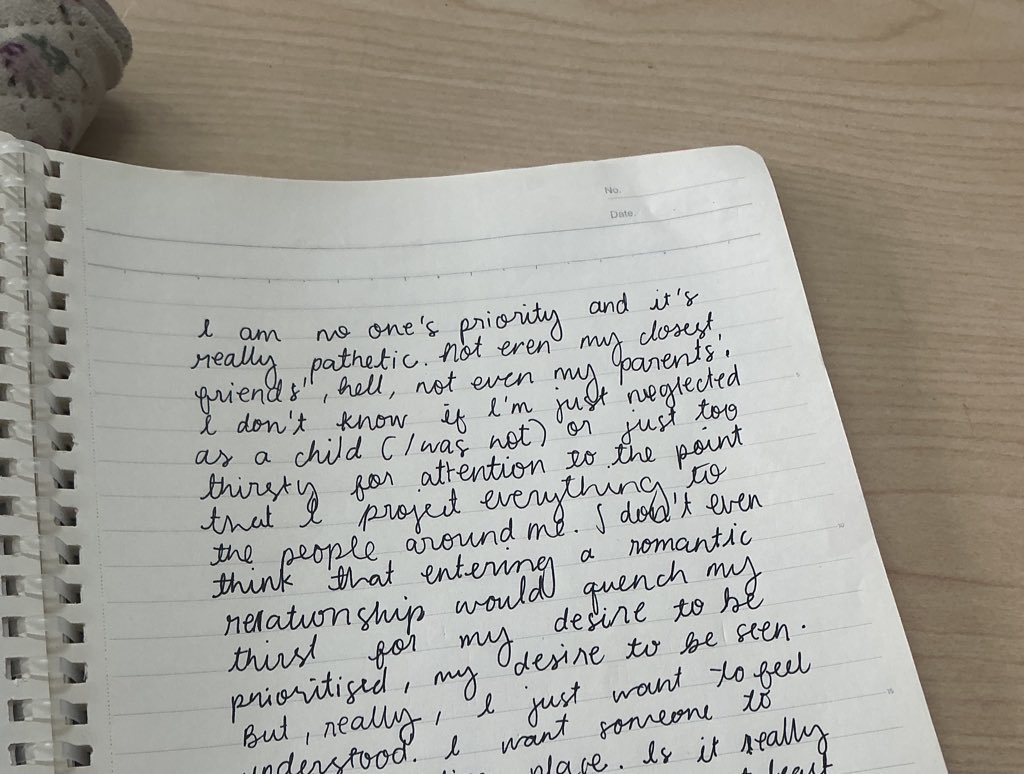 No.
Date.
I am no one's priority and it's
really pathetic. not even my closest
friends', hell, not even my parents'.
I don't know if I'm just neglected
as a child (I was not) or just too
thirsty for attention to the point
that I project everything to
the people around me. I don't even
think that entering a romantic
relationship would quench my
thirst for my desire to be
prioritised, my desire to be seen.
But, really, I just want to feel
understood. I want someone to
place. Is it really
least